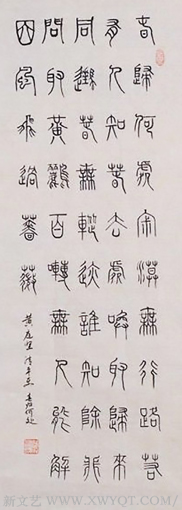 春歸何處寂漠無行路若
有人知春去處喚取歸來
同住春無蹤迹誰知除非
問取黃鸝百囀無人能解
因風飛過薔薇
黃庭堅清平樂
新文艺 WWW.XWYQT.COM